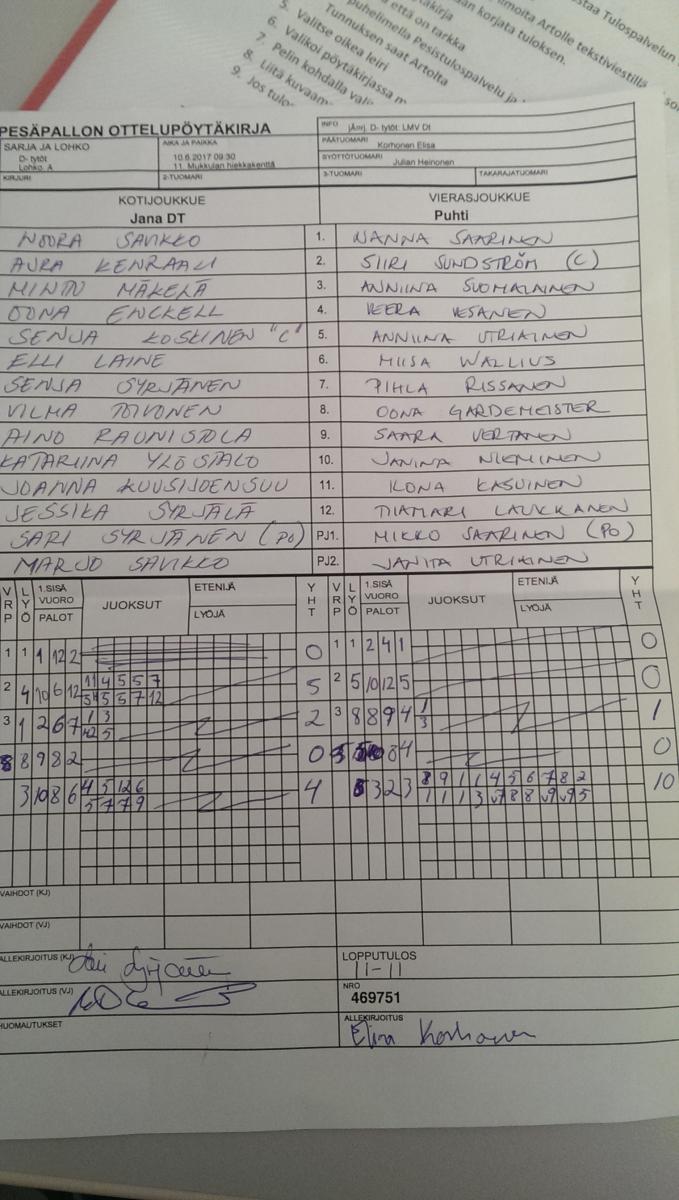 staa Tulospalvelun
ilmoita Artolle tekstiviestillä
an korjata tuloksen.
että on tarkka
puhelimella Pesistulospalvelu ja
Tunnuksen saat Artolta
5. Valitse oikea leiri
6. Valikoi pöytäkirjassa m
7. Pelin kohdalla vali
8. Liitä kuvaam
9. Jos tulo
PESÄPALLON OTTELUPÖYTÄKIRJA
INFO jÄnrj. D- tytöt: LMV Dt
SARJA JA LOHKO
D- tytöt
Lohko: A
AIKA JA PAIKKA
10.6.2017 09:30
11. Mukkulan hiekkakenttä
PÄÄTUOMARI Korhonen Elisa
SYÖTTÖTUOMARI Julian Heinonen
KIRJURI 2-TUOMARI 3-TUOMARI TAKARAJATUOMARI
KOTIJOUKKUE VIERASJOUKKUE
Jana DT Puhti
NOORA SAVIKKO 1. NANNA SAARINEN
AURA KENRAALI 2. SIIRI SUNDSTRÖM (C)
MINTU MÄKELÄ 3. ANNIINA SUOMALAINEN
OONA ENCKELL 4. VEERA VESANEN
SENJA KOSKINEN "C" 5. ANNIINA UTRIAINEN
ELLI LAINE 6. MIISA WALLIUS
SENJA SYRJÄNEN 7. PIHLA RISSANEN
VILMA TOIVONEN 8. OONA GARDEMEISTER
AINO RAUNISTOLA 9. SAARA VERTANEN
KATARIINA YLÖSTALO 10. JANINA NIEMINEN
JOANNA KUUSIJOENSUU 11. ILONA KASUINEN
JESSIKA SYRJÄLÄ 12. TIAMARI LAUKKANEN
SARI SYRJÄNEN (PO) PJ1. MIKKO SAARINEN (PO)
MARJO SAVIKKO PJ2. JANITA UTRIAINEN
VRP LYÖ 1.SISÄ VUORO PALOT JUOKSUT ETENIJÄ LYÖJÄ YHT VRP LYÖ 1.SISÄ VUORO PALOT JUOKSUT ETENIJÄ LYÖJÄ YHT
1 1 1 12 2 0 1 1 2 4 1 0
2 4 10 6 12 11 4 5 5 7 5 2 5 10 12 5 0
5 5 7 12
3 1 2 6 7 1 3 2 3 8 8 9 4 1 1
12 5 3
8 8 9 8 2 0 8 4 0
3 10 8 6 4 5 12 6 4 3 2 3 8 9 1 1 4 5 6 7 8 2 10
5 7 7 9 1 1 1 3 7 8 8 9 9 5
VAIHDOT (KJ)
VAIHDOT (VJ)
ALLEKIRJOITUS (KJ)
LOPPUTULOS
11-11
ALLEKIRJOITUS (VJ)
NRO
469751
HUOMAUTUKSET
ALLEKIRJOITUS
Elisa Korhonen